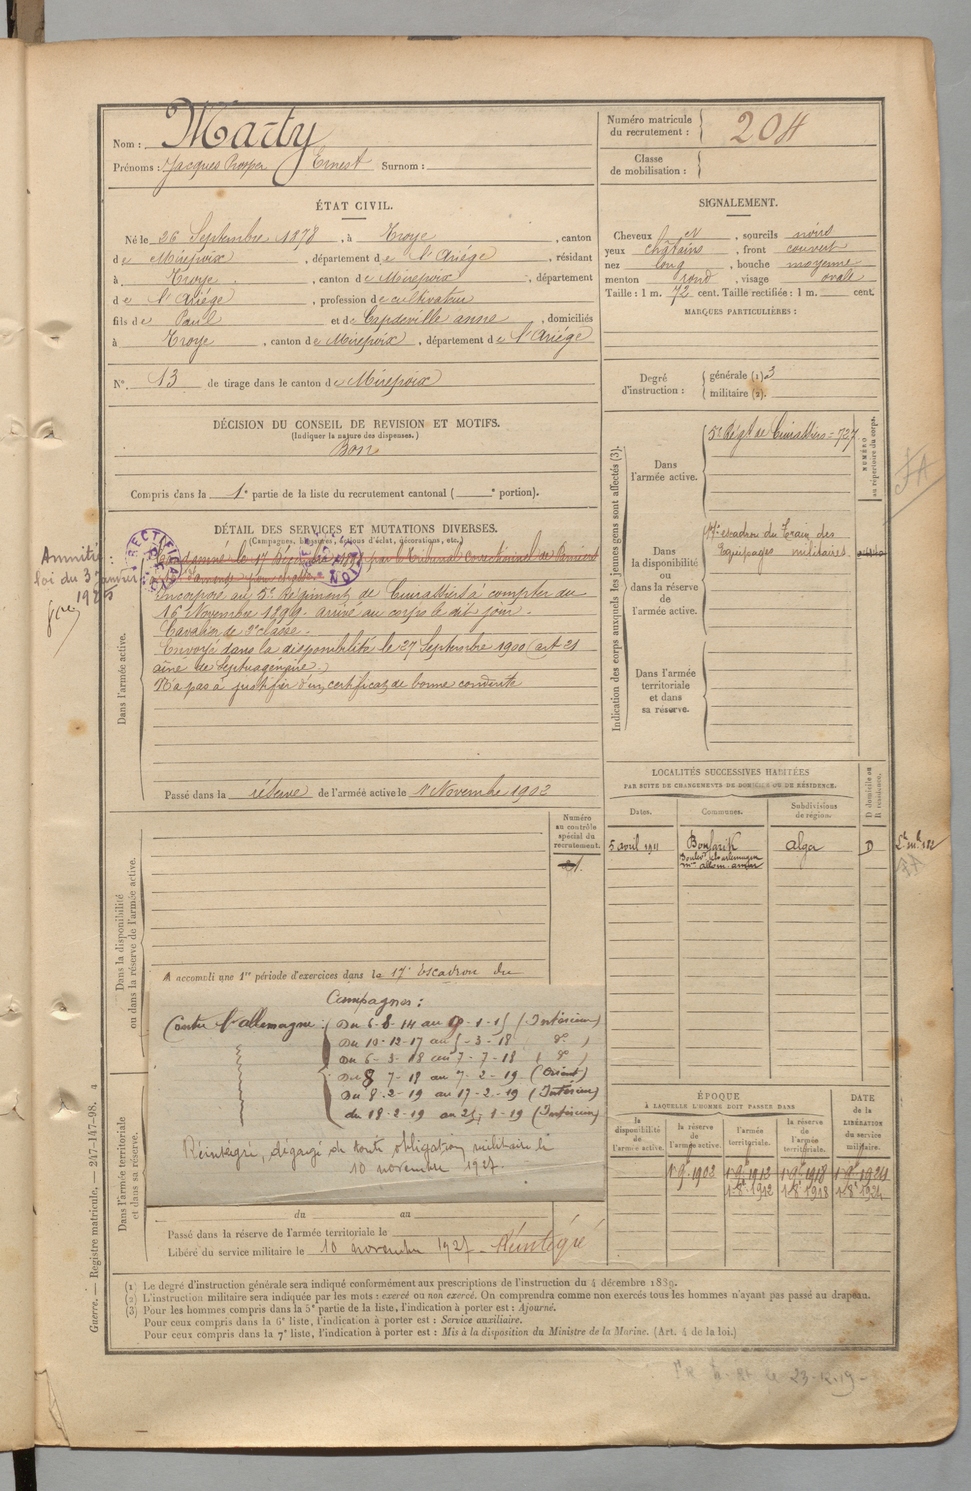 Nom : Marty
Prénoms : Jacques Prosper Ernest Surnom :
Numéro matricule du recrutement : 204
Classe de mobilisation :
ÉTAT CIVIL.
Né le 26 Septembre 1878, à Troye, canton
de Mirepoix, département de l'Ariége, résidant
à Troye, canton de Mirepoix, département
de l'Ariége, profession de cultivateur
fils de Paul et de Capdeville anna, domiciliés
à Troye, canton de Mirepoix, département de l'Ariége
N° 13 de tirage dans le canton de Mirepoix
SIGNALEMENT.
Cheveux, sourcils noirs
yeux châtains, front couvert
nez long, bouche moyenne
menton rond, visage ovale
Taille : 1 m. 72 cent. Taille rectifiée : 1 m. cent.
MARQUES PARTICULIÈRES :
Degré d'instruction : générale (1) 3
militaire (2).
DÉCISION DU CONSEIL DE REVISION ET MOTIFS.
(Indiquer la nature des dispenses.)
Bon
Compris dans la 1e partie de la liste du recrutement cantonal ( e portion).
DÉTAIL DES SERVICES ET MUTATIONS DIVERSES.
(Campagnes, blessures, actions d'éclat, décorations, etc.)
Amnistié
loi du 3 janvier
1925
RECTIFICATION
Condamné le 17 par le Tribunal Correctionnel de
amende pour
Incorporé au 5e Régiment de Cuirassiers à compter du
16 Novembre 1899. arrivé au corps le dit jour.
Cavalier de 2e classe.
Envoyé dans la disponibilité le 27 Septembre 1900 (art 21
ainé de septuagénaire.)
N'a pas à justifier d'un certificat de bonne conduite
Dans l'armée active.
Passé dans la réserve de l'armée active le 1er Novembre 1902
Indication des corps auxquels les jeunes gens sont affectés (3).
NUMÉRO au répertoire du corps.
Dans l'armée active.
5e Régt de Cuirassiers = 727
Dans la disponibilité ou dans la réserve de l'armée active.
17e escadron du Train des
Equipages militaires.
Dans l'armée territoriale et dans sa réserve.
LOCALITÉS SUCCESSIVES HABITÉES
PAR SUITE DE CHANGEMENTS DE DOMICILE OU DE RÉSIDENCE.
Dates. Communes. Subdivisions de région. D domicile ou R résidence.
5 avril 1911 Boufarik Alger D
Numéro au contrôle spécial du recrutement.
Dans la disponibilité ou dans la réserve de l'armée active.
A accompli une 1re période d'exercices dans le 17e escadron du
Campagnes :
Contre l'allemagne : Du 6-8-14 au 9-1-15 (Intérieur)
Du 10-12-17 au 5-3-18 ( do )
Du 6-3-18 au 7-7-18 ( do )
Du 8 7-18 au 7-2-19 (Orient)
Du 8-2-19 au 17-2-19 (Intérieur)
du 18-2-19 au 25-1-19 (Intérieur)
Réintégré, dégagé de toute obligation militaire le
10 novembre 1927.
Dans l'armée territoriale et dans sa réserve.
du au
Passé dans la réserve de l'armée territoriale le
Libéré du service militaire le 10 novembre 1927 - Réintégré
ÉPOQUE
À LAQUELLE L'HOMME DOIT PASSER DANS
la disponibilité de l'armée active. la réserve de l'armée active. l'armée territoriale. la réserve de l'armée territoriale. DATE de la LIBÉRATION du service militaire.
1er 9e 1902 1er 9e 1912 1er 9e 1918 1er 9e 1924
1-8e 1912 1-8e 1918 1-8e 1924
(1) Le degré d'instruction générale sera indiqué conformément aux prescriptions de l'instruction du 4 décembre 1889.
(2) L'instruction militaire sera indiquée par les mots : exercé ou non exercé. On comprendra comme non exercés tous les hommes n'ayant pas passé au drapeau.
(3) Pour les hommes compris dans la 5e partie de la liste, l'indication à porter est : Ajourné.
Pour ceux compris dans la 6e liste, l'indication à porter est : Service auxiliaire.
Pour ceux compris dans la 7e liste, l'indication à porter est : Mis à la disposition du Ministre de la Marine. (Art. 4 de la loi.)
Guerre. — Registre matricule. — 247-147-98. 4
le 23-12-19